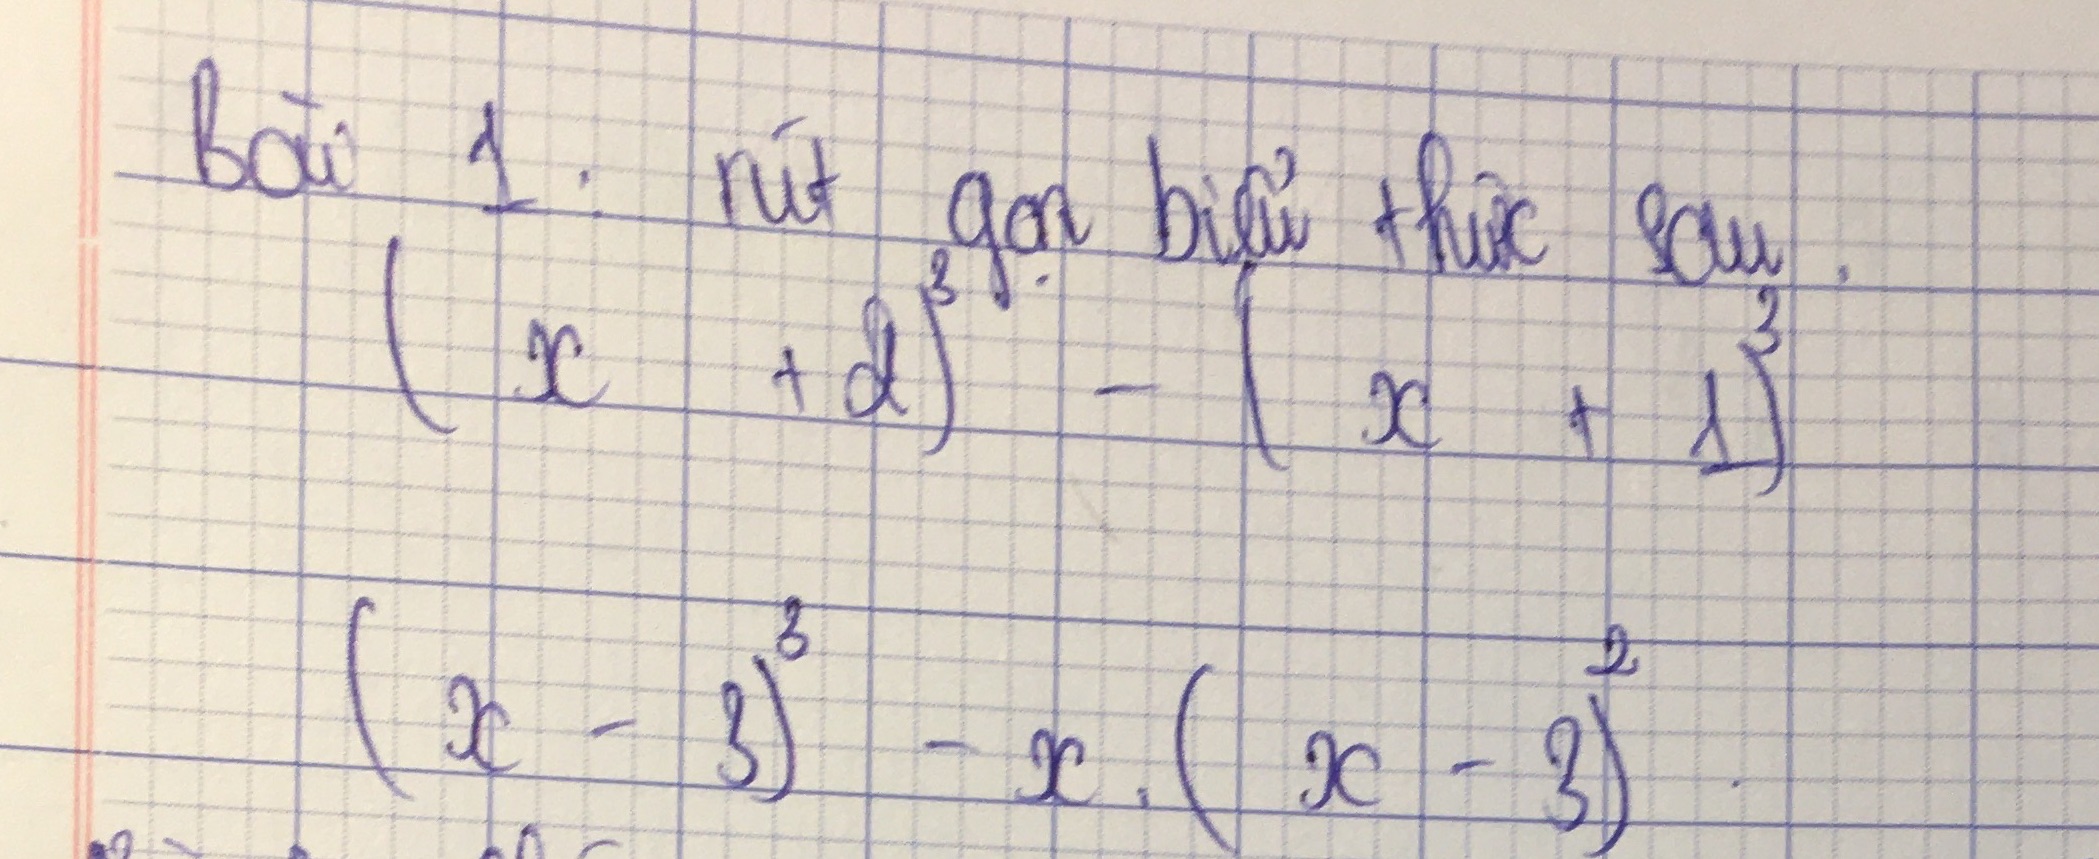 Bài 1: rút gọn biểu thức sau.
(x + 2)³ - (x + 1)³
(x - 3)³ - x.(x - 3)².